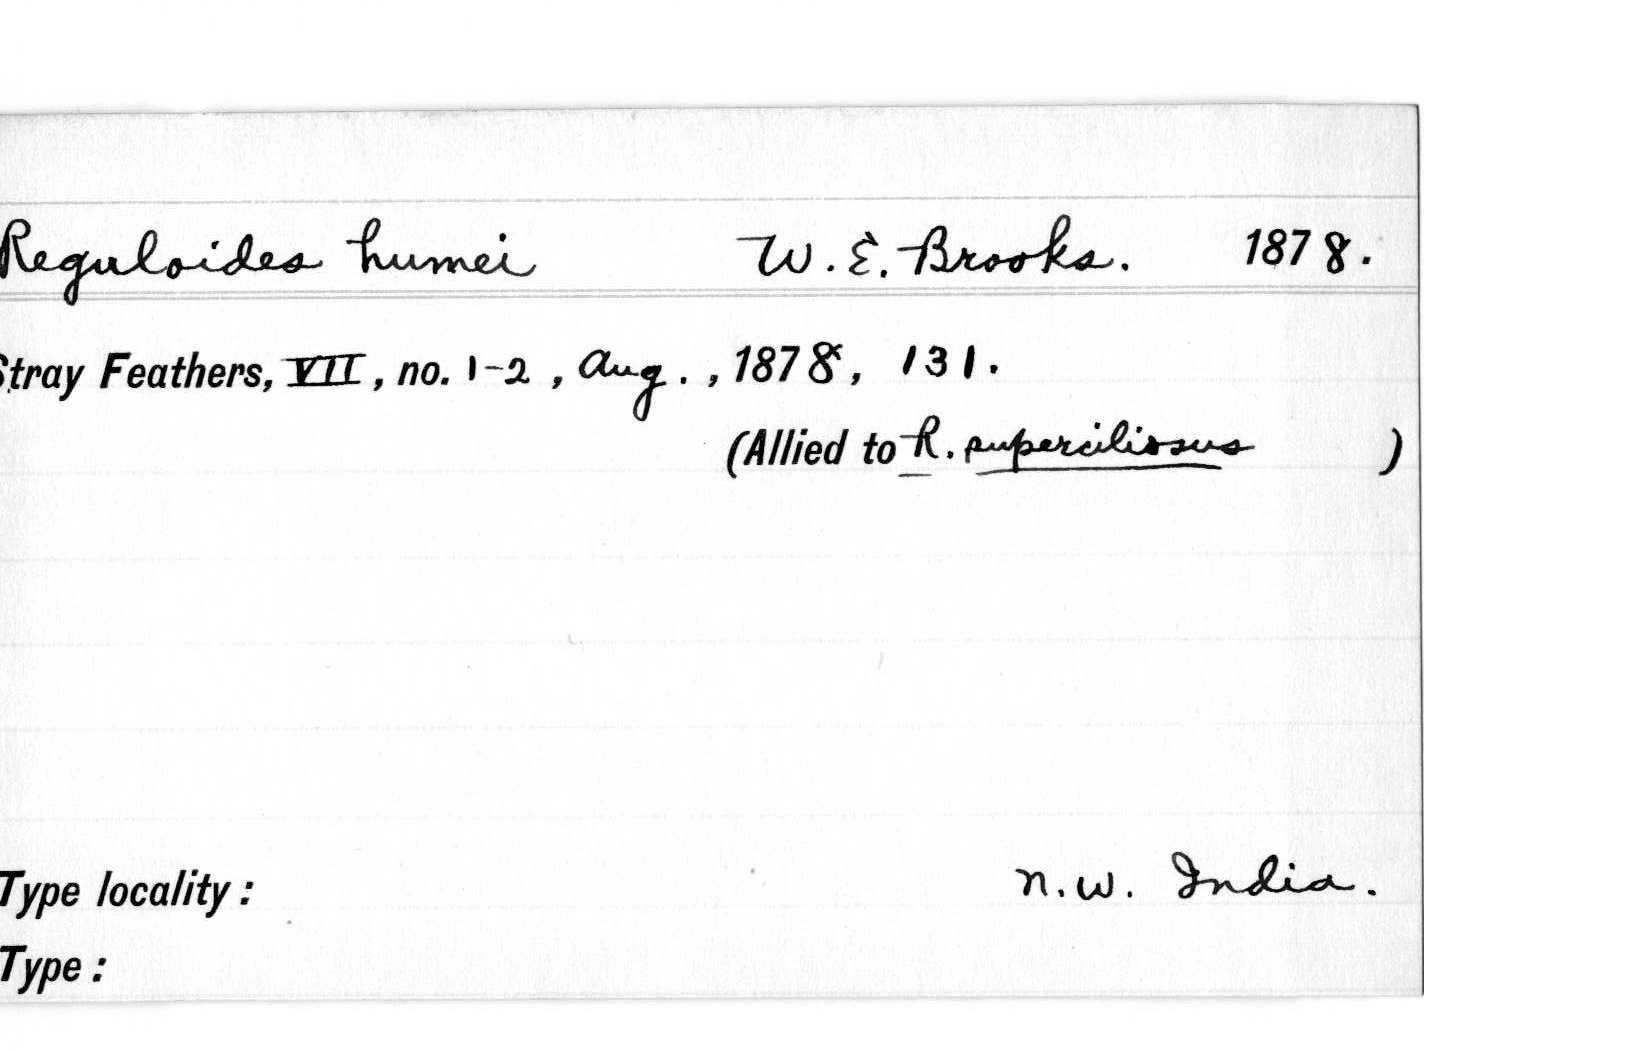 Reguloides humei W. E. Brooks. 1878.
Stray Feathers, VII, no. 1-2, Aug., 1878, 131.
(Allied to R. superciliosus )
Type locality: N.W. India.
Type: